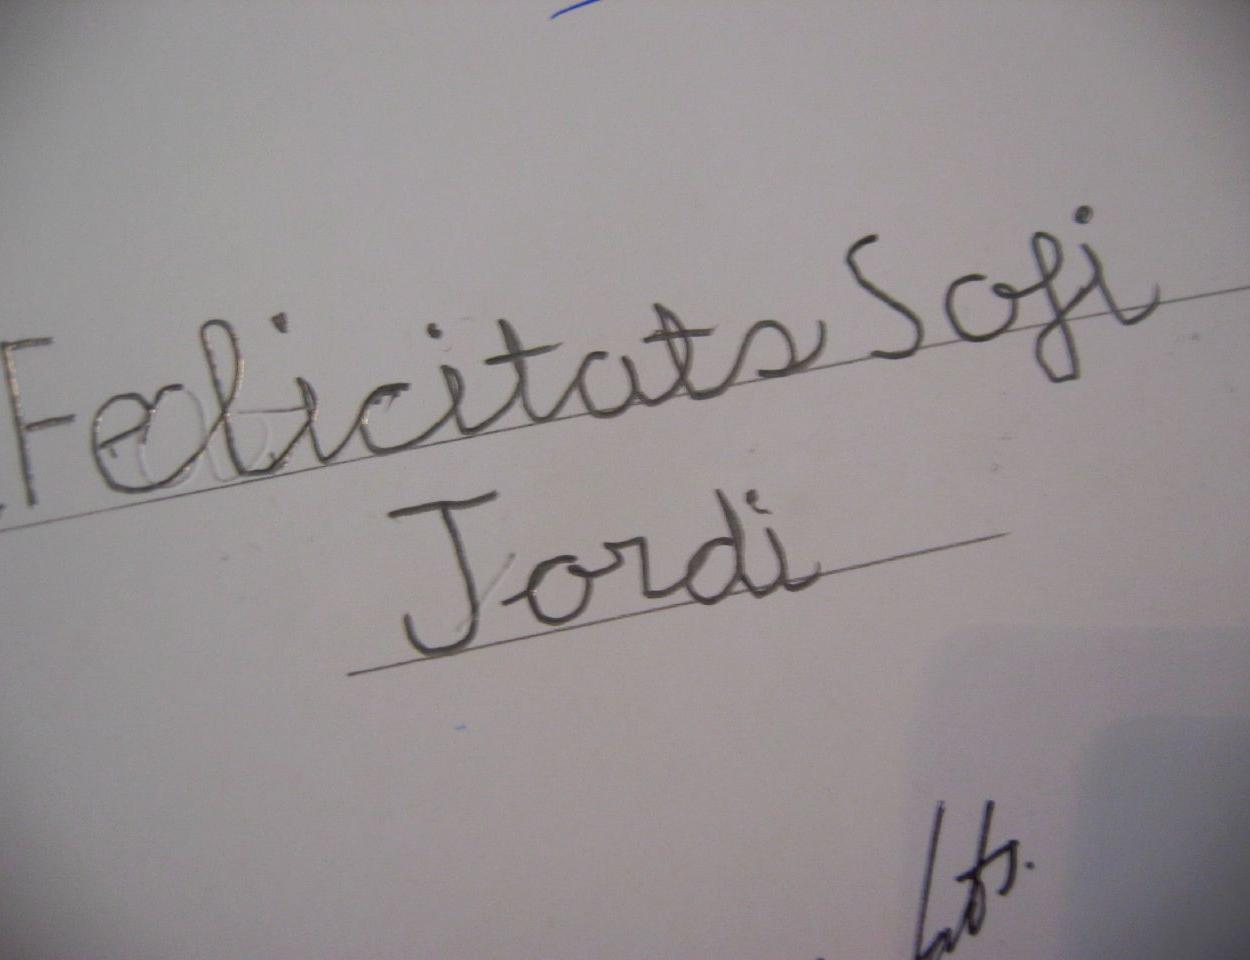 Felicitats Sofi
Jordi